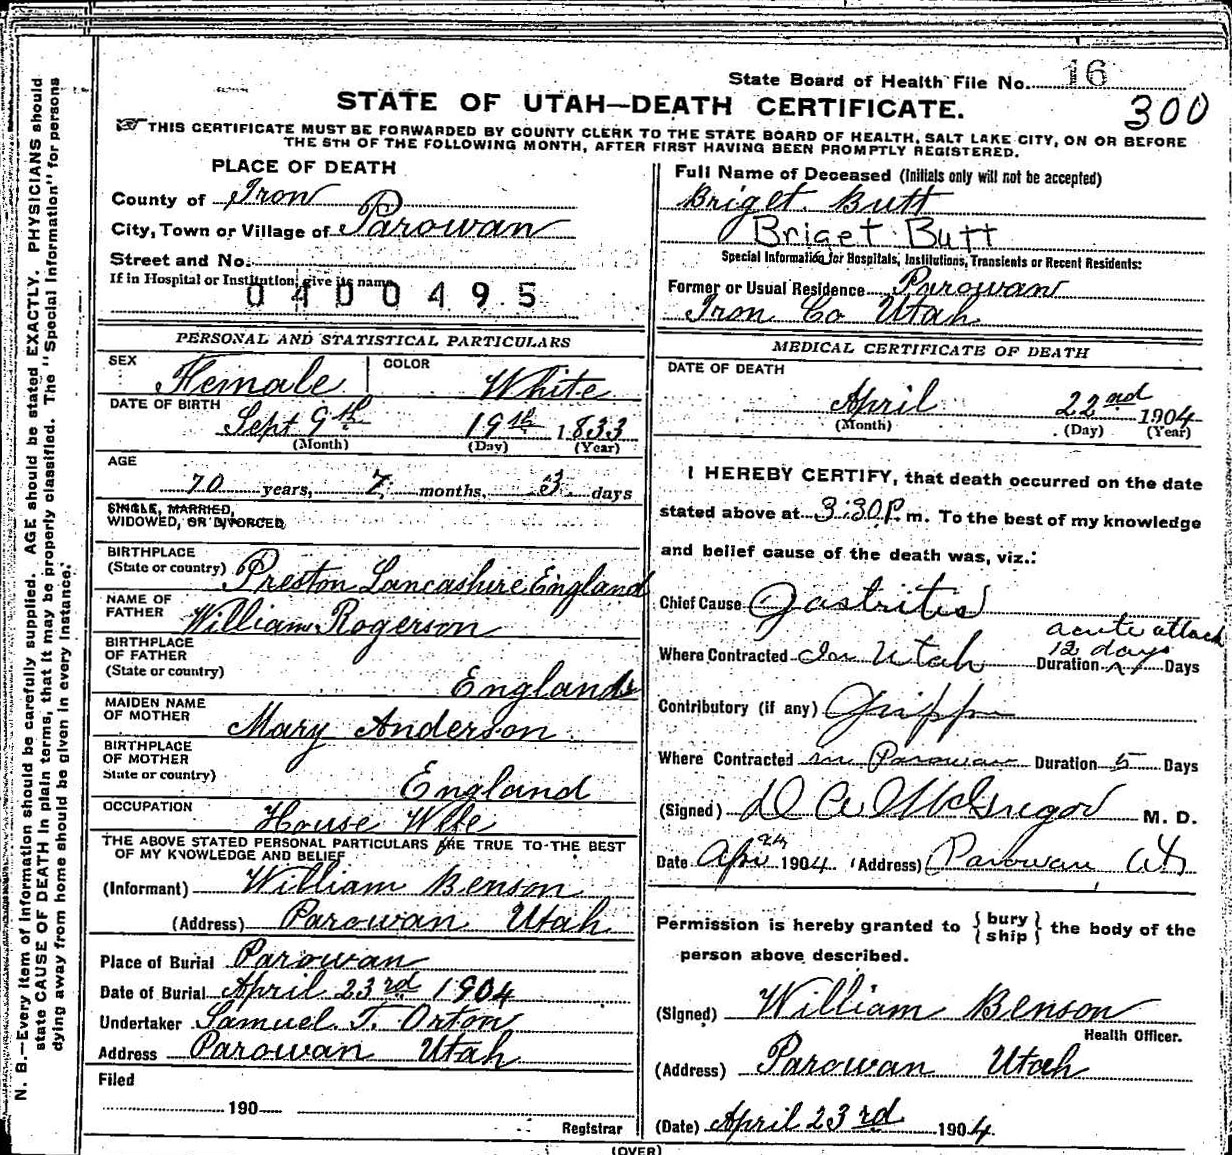 State Board of Health File No. 16
300
STATE OF UTAH—DEATH CERTIFICATE.
THIS CERTIFICATE MUST BE FORWARDED BY COUNTY CLERK TO THE STATE BOARD OF HEALTH, SALT LAKE CITY, ON OR BEFORE
THE 5TH OF THE FOLLOWING MONTH, AFTER FIRST HAVING BEEN PROMPTLY REGISTERED.
N. B.—Every item of information should be carefully supplied. AGE should be stated EXACTLY. PHYSICIANS should
state CAUSE OF DEATH in plain terms, that it may be properly classified. The "Special Information" for persons
dying away from home should be given in every instance.
PLACE OF DEATH
County of Iron
City, Town or Village of Parowan
Street and No.
If in Hospital or Institution, give its name
0400495
PERSONAL AND STATISTICAL PARTICULARS
SEX Female COLOR White
DATE OF BIRTH
Sept 9th 19th 1833
(Month) (Day) (Year)
AGE
70 years, 7 months, 3 days
SINGLE, MARRIED,
WIDOWED, OR DIVORCED
BIRTHPLACE
(State or country) Preston Lancashire England
NAME OF
FATHER William Rogerson
BIRTHPLACE
OF FATHER
(State or country) England
MAIDEN NAME
OF MOTHER Mary Anderson
BIRTHPLACE
OF MOTHER
State or country) England
OCCUPATION House Wife
THE ABOVE STATED PERSONAL PARTICULARS ARE TRUE TO THE BEST
OF MY KNOWLEDGE AND BELIEF
(Informant) William Benson
(Address) Parowan Utah
Place of Burial Parowan
Date of Burial April 23rd 1904
Undertaker Samuel T. Orton
Address Parowan Utah
Filed
190
Registrar
Full Name of Deceased (Initials only will not be accepted)
Briget Butt
Briget Butt
Special Information for Hospitals, Institutions, Transients or Recent Residents:
Former or Usual Residence Parowan
Iron Co Utah
MEDICAL CERTIFICATE OF DEATH
DATE OF DEATH
April 22nd 1904
(Month) (Day) (Year)
I HEREBY CERTIFY, that death occurred on the date
stated above at 3:30 P. m. To the best of my knowledge
and belief cause of the death was, viz.:
Chief Cause Gastritis
acute attack
12 days
Where Contracted In Utah Duration Days
Contributory (if any) Grippe
Where Contracted in Parowan Duration 5 Days
(Signed) D A McGregor M. D.
Date Apr 24 1904 (Address) Parowan Ut
Permission is hereby granted to {bury ship} the body of the
person above described.
(Signed) William Benson
Health Officer.
(Address) Parowan Utah
(Date) April 23rd 1904.
(OVER)